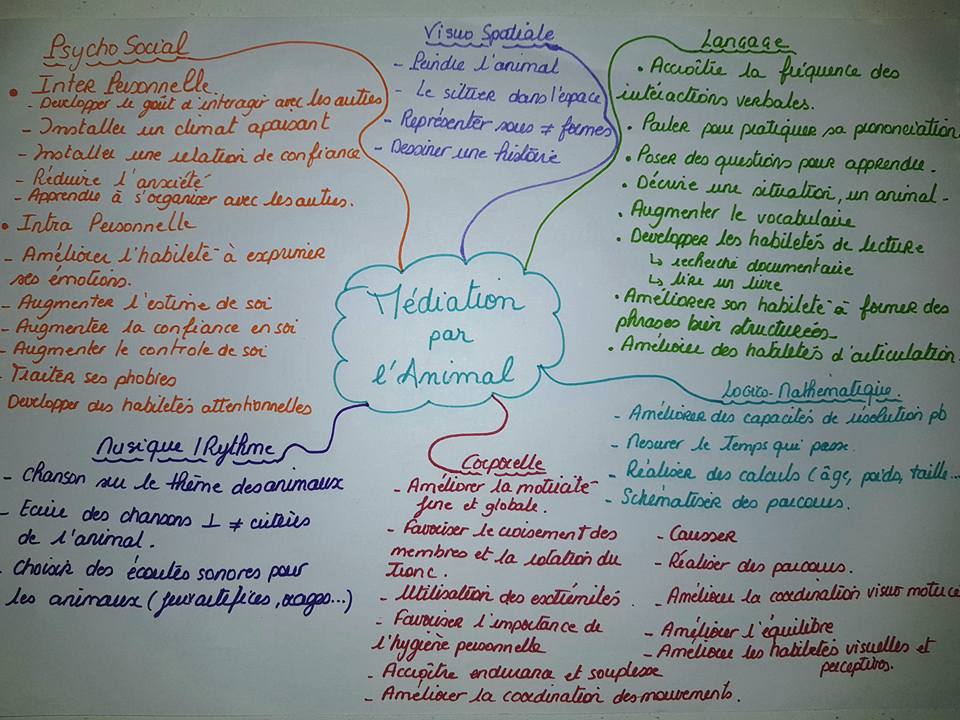 Psycho Social
• Inter Personnelle.
- Développer le goût d'interagir avec les autres
- Installer un climat apaisant
- Installer une relation de confiance
- Réduire l'anxiété
- Apprendre à s'organiser avec les autres.
• Intra Personnelle
- Améliorer l'habileté à exprimer
ses émotions.
- Augmenter l'estime de soi
- Augmenter la confiance en soi
- Augmenter le controle de soi
- Traiter ses phobies
Développer des habiletés attentionnelles
Visuo Spatiale
- Peindre l'animal
- Le situer dans l'espace
- Représenter sous ≠ formes
- Dessiner une histoire
Langage
• Accroître la fréquence des
intéractions verbales.
• Parler pour pratiquer sa prononciation
• Poser des questions pour apprendre.
• Décrire une situation, un animal -
• Augmenter le vocabulaire
• Développer les habiletés de lecture
↳ recherche documentaire
↳ lire un livre
• Améliorer son habileté à former des
phrases bien structurées.
• Améliorer des habiletés d'articulation.
Médiation
par
l'Animal
Logico-Mathématique.
- Améliorer des capacités de résolution pb
- Mesurer le Temps qui passe.
- Réaliser des calculs (âge, poids, taille...
- Schématiser des parcours.
Musique / Rythme
- Chanson sur le thème des animaux
- Ecrire des chansons ⊥ ≠ critères
de l'animal.
- Choisir des écoutes sonores pour
les animaux (feux artifices, orages...)
Corporelle
- Améliorer la motricité
fine et globale.
- Favoriser le croisement des
membres et la rotation du
Tronc.
- Utilisation des extrémités.
- Favoriser l'importance de
l'hygiène personnelle
- Accroître endurance et souplesse
- Améliorer la coordination des mouvements.
- Causser
- Réaliser des parcours.
- Améliorer la coordination visuo motrice
- Améliorer l'équilibre
- Améliorer les habiletés visuelles et
perceptives.